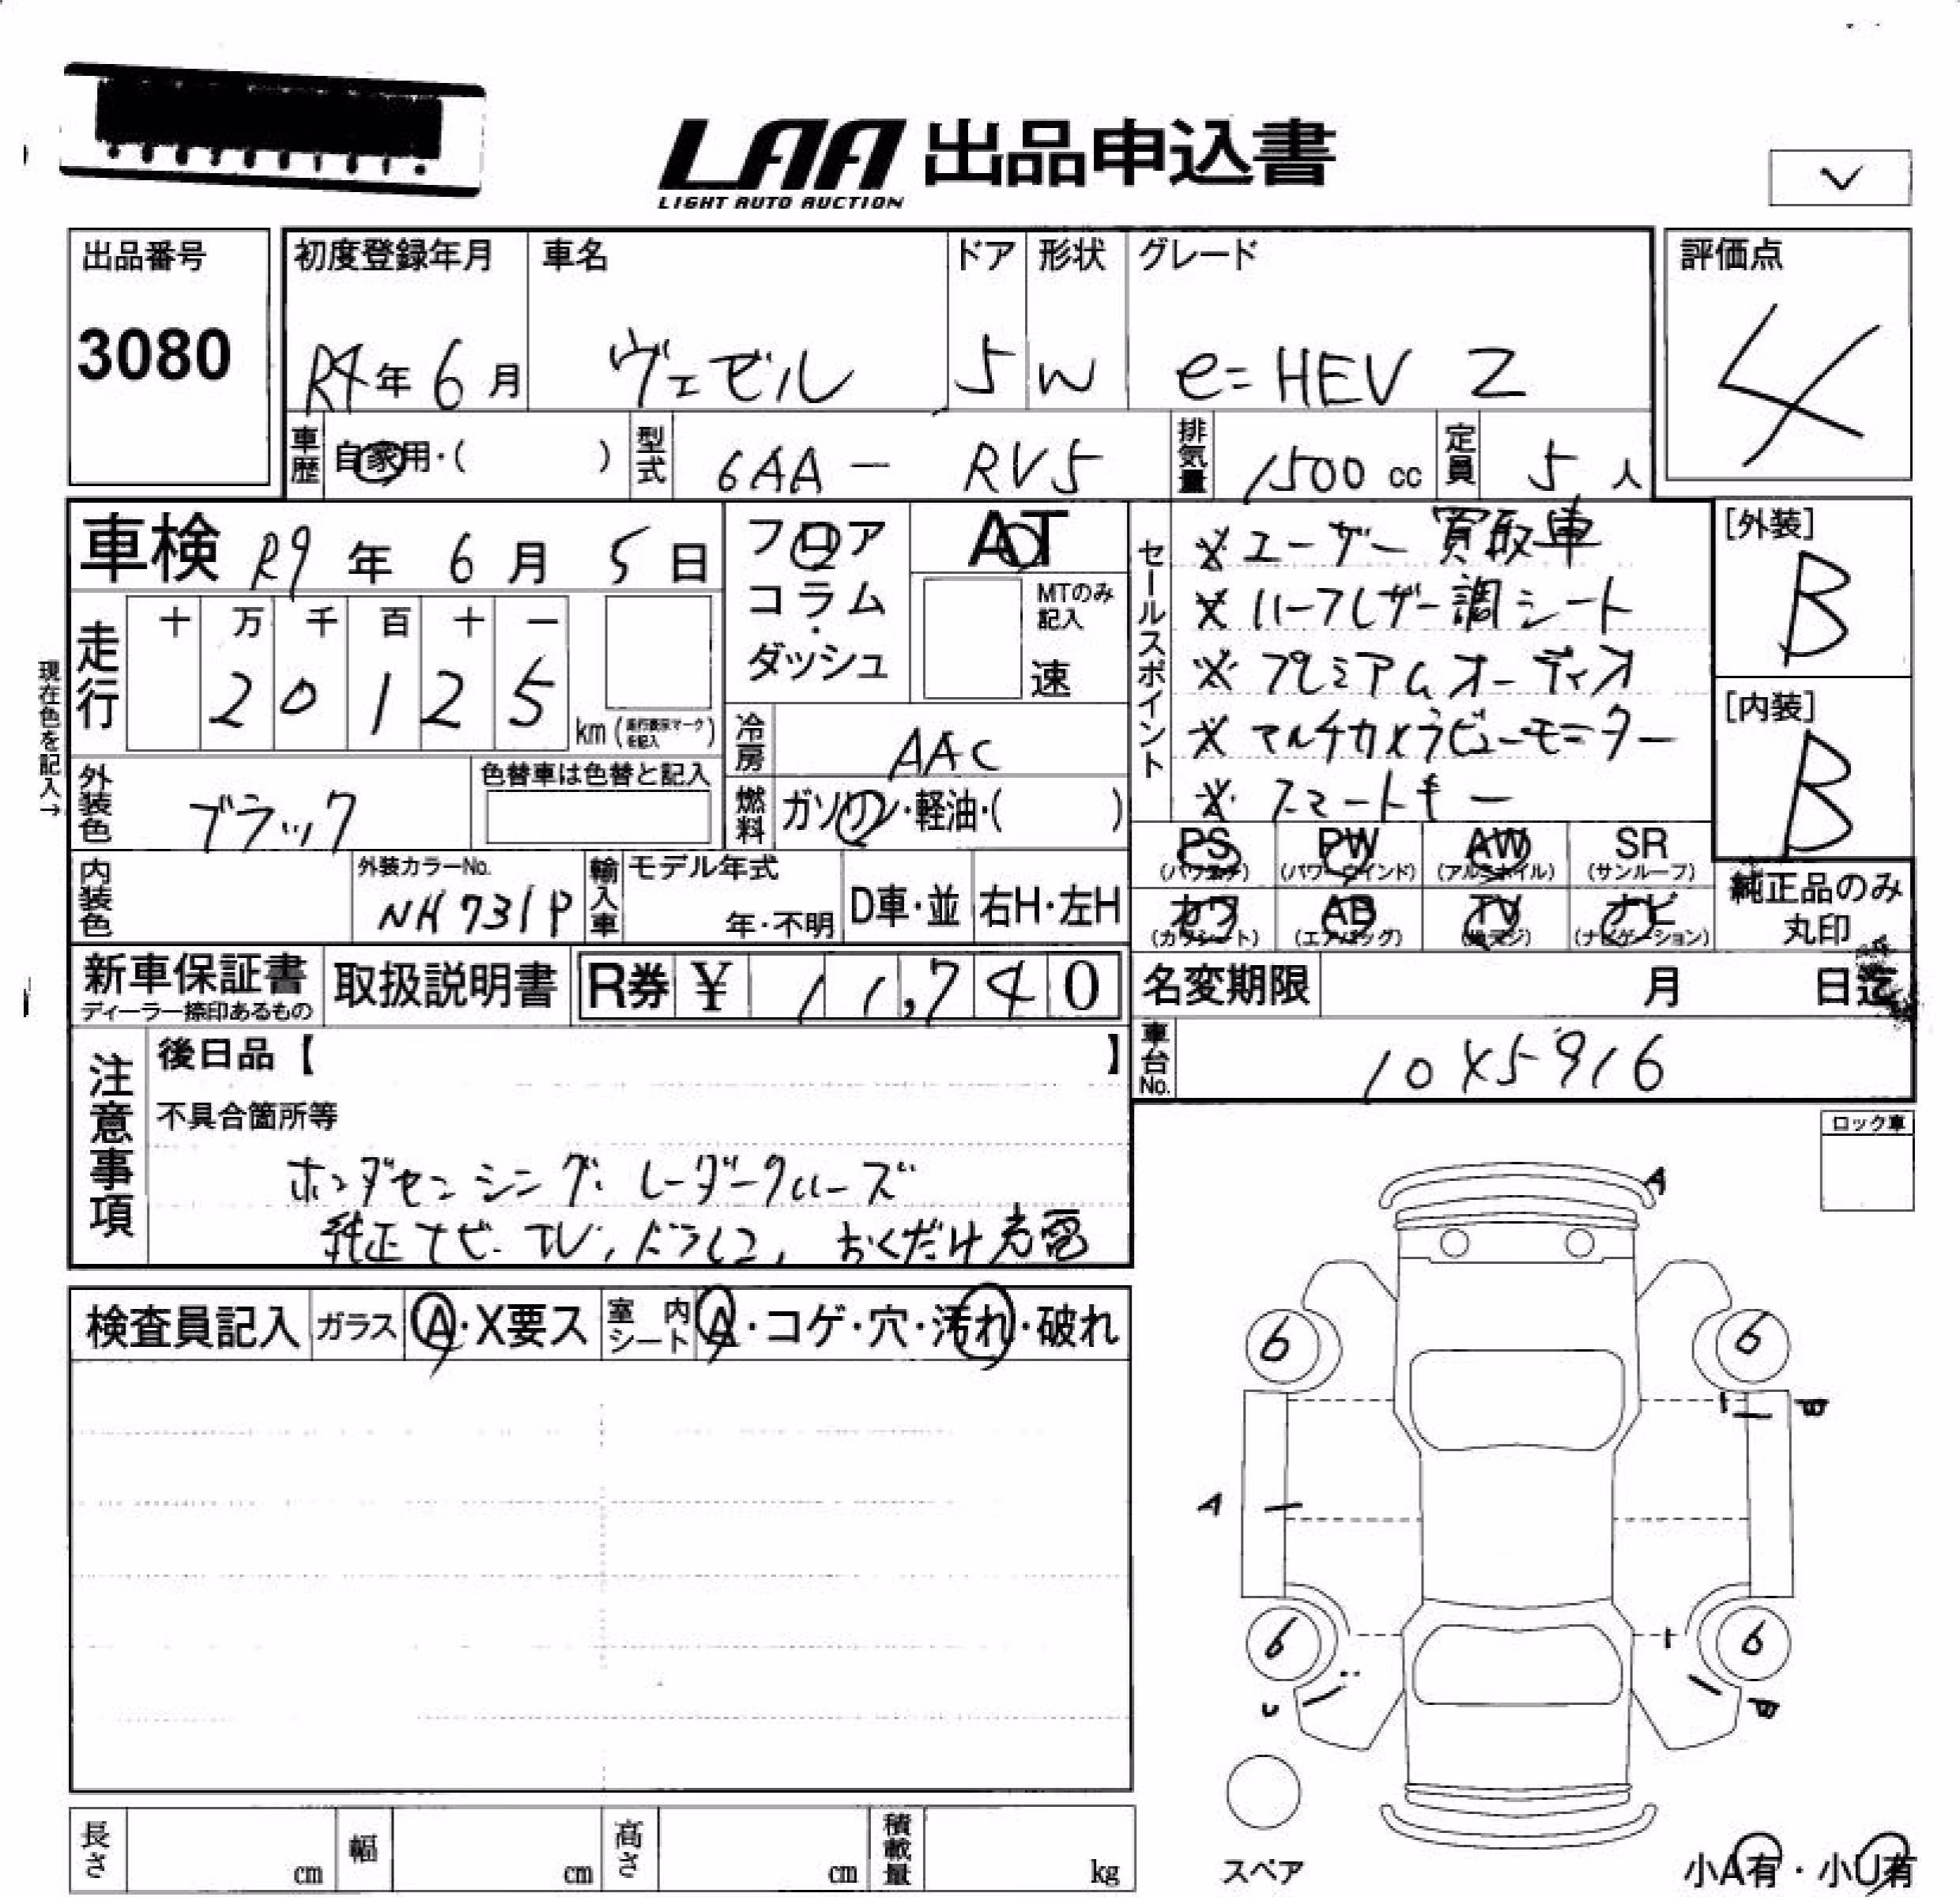 LAA 出品申込書
LIGHT AUTO AUCTION
出品番号
3080
初度登録年月
R4年 6月
車名
ヴェゼル
ドア
5
形状
W
グレード
e=HEV Z
評価点
4
車歴
自家用・( )
型式
6AA - RV5
排気量
1500 cc
定員
5 人
車検 R9 年 6 月 5 日
フロア
コラム・
ダッシュ
AT
MTのみ
記入
速
現在色を記入→
走行
十 万 千 百 十 一
2 0 1 2 5
km (走行表示マークを記入)
冷房
AAC
燃料
ガソリン・軽油・( )
セールスポイント
※ユーザー買取車
※ハーフレザー調シート
※プレミアムオーディオ
※マルチカメラビューモニター
※スマートキー
[外装]
B
[内装]
B
外装色
ブラック
色替車は色替と記入
内装色
外装カラーNo.
NH731P
輸入車
モデル年式
年・不明
D車・並
右H・左H
PS
(パワステ)
PW
(パワーウインド)
AW
(アルミホイル)
SR
(サンルーフ)
カワ
(カワシート)
AB
(エアバッグ)
TV
(テレビ)
ナビ
(ナビゲーション)
純正品のみ
丸印
新車保証書
ディーラー捺印あるもの
取扱説明書
R券 ¥ 11,740
名変期限
月 日迄
車台No.
10X5916
注意事項
後日品【 】
不具合箇所等
ホンダセンシング. レーダークルーズ
純正ナビ. TV, ドラレコ, おくだけ充電
ロック車
検査員記入
ガラス
A・X要ス
室内シート
A・コゲ・穴・汚れ・破れ
A
6
6
B
A
6
6
U
B
スペア
長さ
cm
幅
cm
高さ
cm
積載量
kg
小A有・小U有